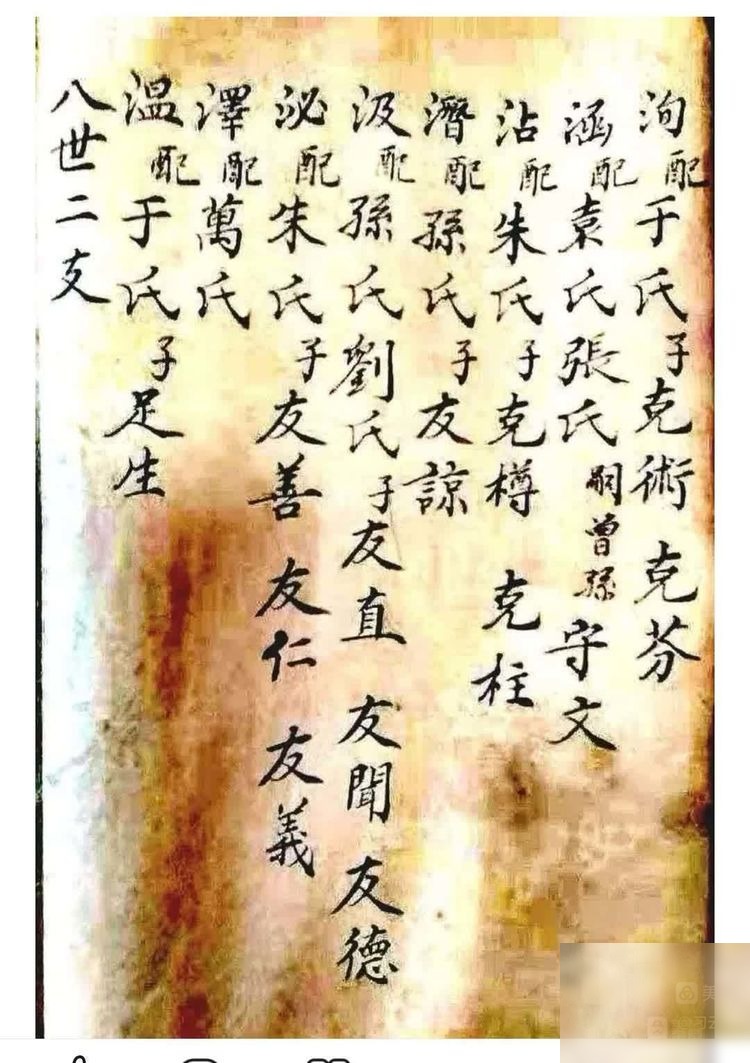 洵配于氏子克術 克芬
涵配袁氏張氏嗣曾孫守文
沾配朱氏子克樽 克柱
潛配孫氏子友諒
汲配孫氏劉氏子友直 友聞 友德
泌配朱氏子友善 友仁 友義
澤配萬氏
溫配于氏子足生
八世二支